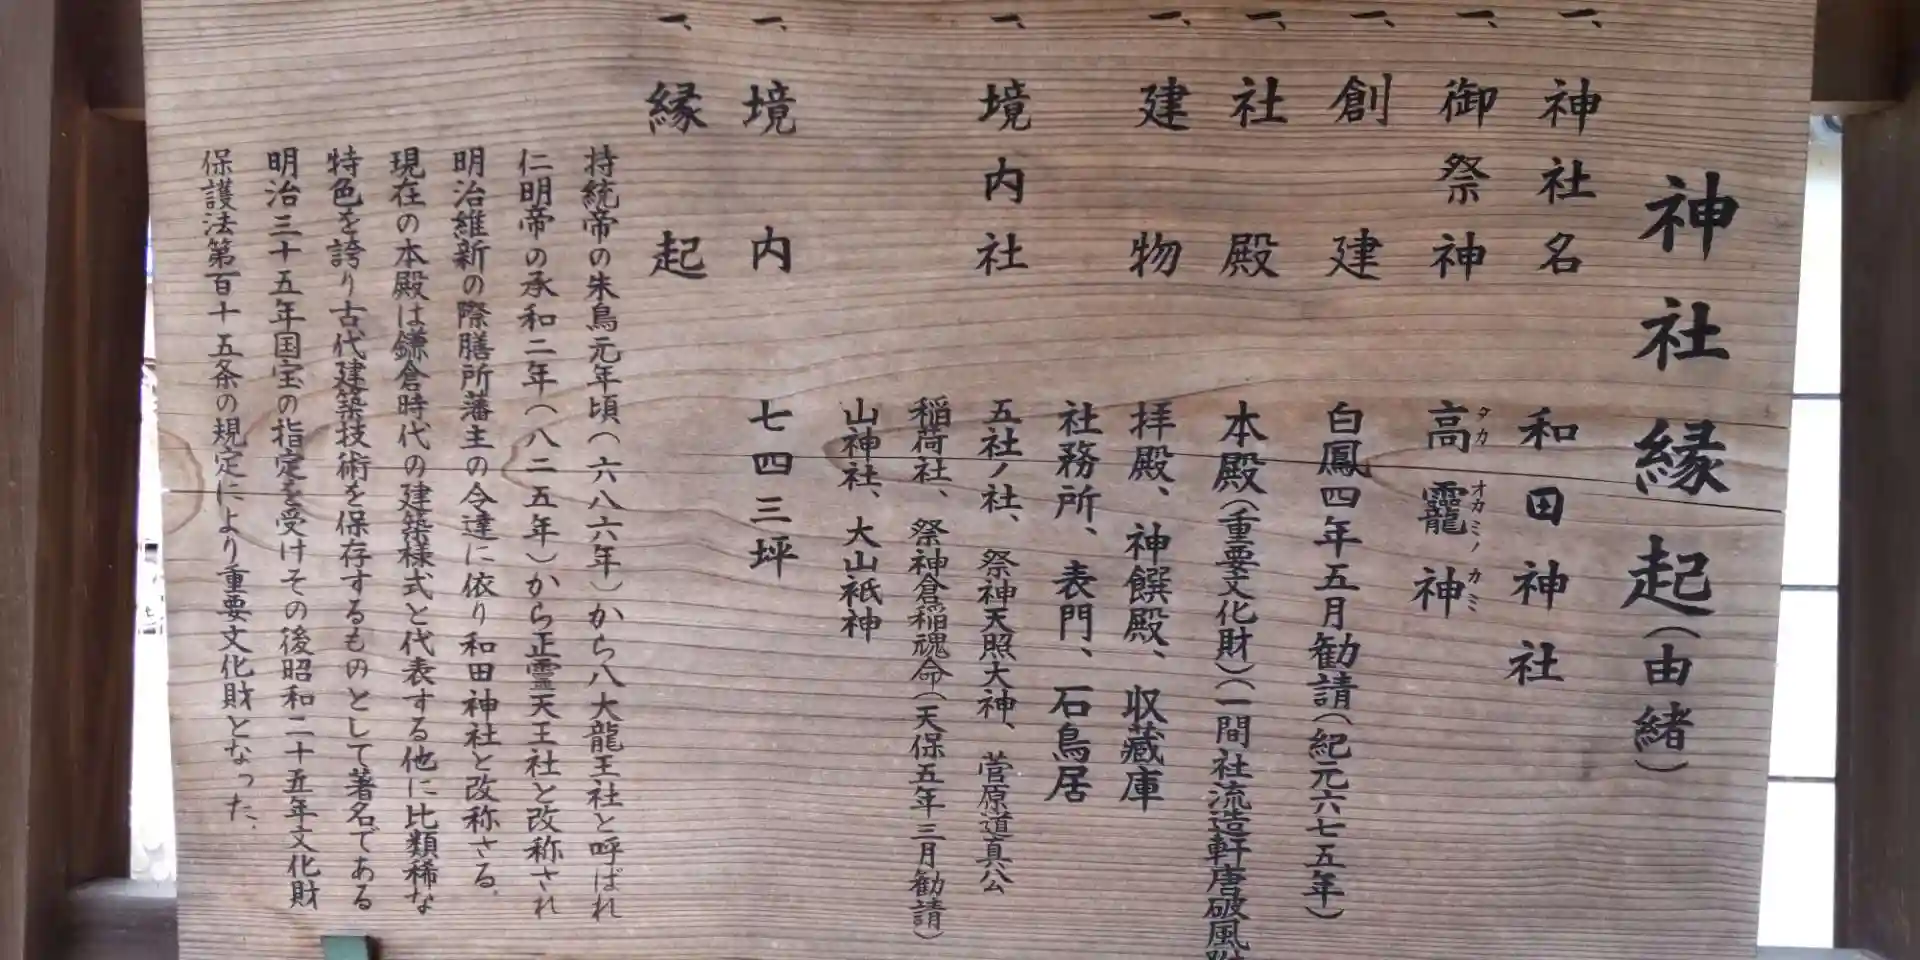 神社縁起(由緒)
一、神社名 和田神社
一、御祭神 高龗神
タカ オカミノ カミ
一、創建 白鳳四年五月勧請(紀元六七五年)
一、社殿 本殿(重要文化財)(一間社流造軒唐破風
一、建物 拝殿、神饌殿、収蔵庫
社務所、表門、石鳥居
一、境内社 五社ノ社、祭神天照大神、菅原道真公
稲荷社、祭神倉稲魂命(天保五年三月勧請)
山神社、大山祇神
一、境内 七四三坪
一、縁起
持統帝の朱鳥元年頃(六八六年)から八大龍王社と呼ばれ
仁明帝の承和二年(八二五年)から正霊天王社と改称され
明治維新の際膳所藩主の令達に依り和田神社と改称さる。
現在の本殿は鎌倉時代の建築様式と代表する他に比類稀な
特色を誇り古代建築技術を保存するものとして著名である
明治三十五年国宝の指定を受けその後昭和二十五年文化財
保護法第百十五条の規定により重要文化財となった。